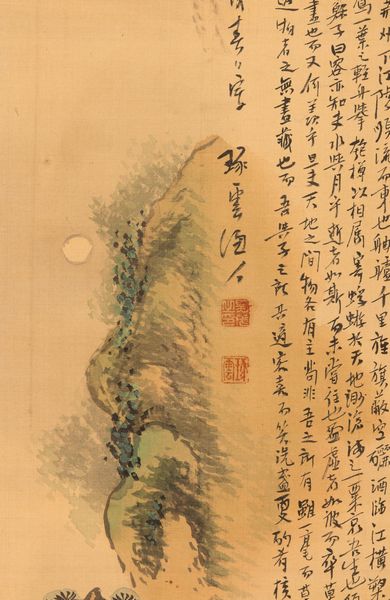 荊州下江陵順流而東也舳艫千里旌旗蔽空釃酒臨江橫槊
駕一葉之輕舟舉匏樽以相屬寄蜉蝣於天地渺滄海之一粟哀吾生也
蘇子曰客亦知夫水與月乎逝者如斯而未嘗往也盈虛者如彼而卒莫
盡也而又何羨乎且夫天地之間物各有主苟非吾之所有雖一毫而莫
造物者之無盡藏也而吾與子之所共適客喜而笑洗盞更酌肴核
琢雲人
琢雲